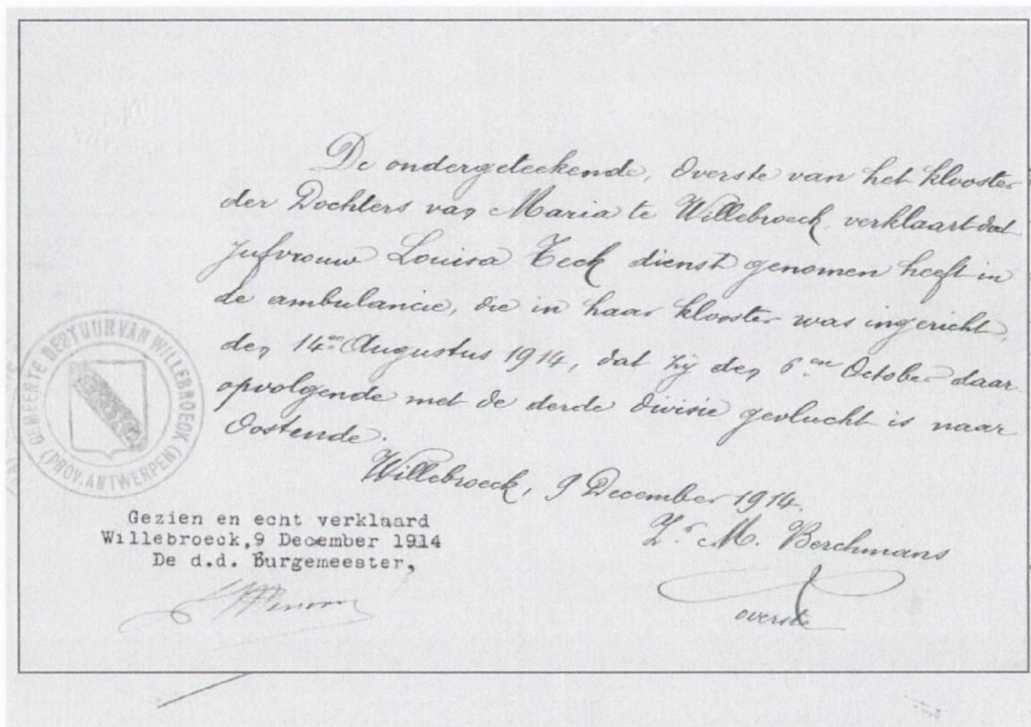 De ondergeteekende, Overste van het klooster
der Dochters van Maria te Willebroeck, verklaart dat
Jufvrouw Louisa Teck dienst genomen heeft in
de ambulancie, die in haar klooster was ingericht,
den 14en Augustus 1914, dat zij den 6en October daar
opvolgende met de derde divisie gevlucht is naar
Oostende.
Willebroeck, 9 December 1914.
Zr. M. Berchmans
overste
GEMEENTE BESTUUR VAN WILLEBROECK
(PROV. ANTWERPEN)
Gezien en echt verklaard
Willebroeck, 9 December 1914
De d.d. Burgemeester,